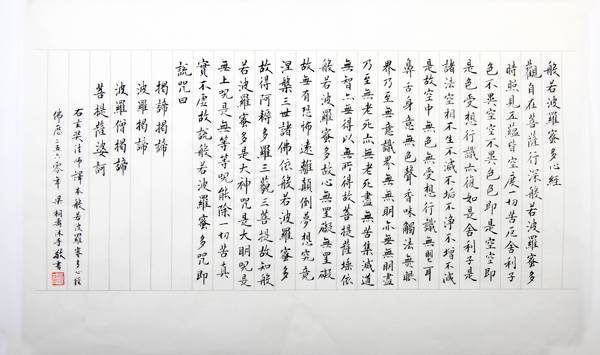 般若波羅蜜多心經
觀自在菩薩行深般若波羅蜜多
時照見五蘊皆空度一切苦厄舍利子
色不異空空不異色色即是空空即
是色受想行識亦復如是舍利子是
諸法空相不生不滅不垢不淨不增不減
是故空中無色無受想行識無眼耳
鼻舌身意無色聲香味觸法無眼
界乃至無意識界無無明亦無無明盡
乃至無老死亦無老死盡無苦集滅道
無智亦無得以無所得故菩提薩埵依
般若波羅蜜多故心無罣礙無罣礙
故無有恐怖遠離顛倒夢想究竟
涅槃三世諸佛依般若波羅蜜多
故得阿耨多羅三藐三菩提故知般
若波羅蜜多是大神咒是大明咒是
無上咒是無等等咒能除一切苦真
實不虛故說般若波羅蜜多咒即
說咒曰
揭諦揭諦
波羅揭諦
波羅僧揭諦
菩提薩婆訶
右玄奘法師譯本般若波羅蜜多心經
佛曆二五六零年 梁桐壽沐手敬書